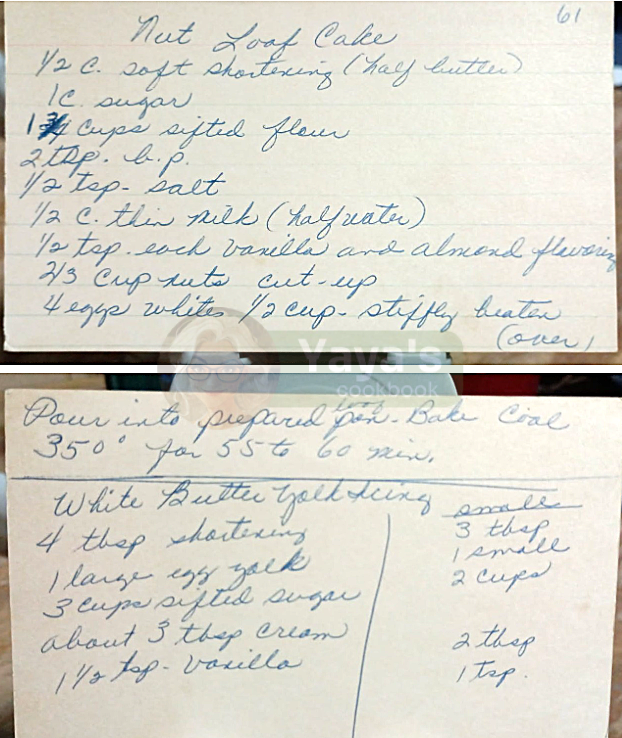 61
Nut Loaf Cake
1/2 c. soft shortening (half butter)
1 c. sugar
1 3/4 cups sifted flour
2 tsp. b.p.
1/2 tsp - salt
1/2 c. thin milk (half water)
1/2 tsp. each vanilla and almond flavoring
2/3 cup nuts cut-up
4 eggs whites 1/2 cup - stiffly beaten
(over)
Yaya's
cookbook
Pour into prepared loaf pan - Bake Cool
350° for 55 to 60 min.
White Butter Yolk Icing
4 tbsp shortening
1 large egg yolk
3 cups sifted sugar
about 3 tbsp cream
1 1/2 tsp - vanilla
small
3 tbsp
1 small
2 cups
2 tbsp
1 tsp.